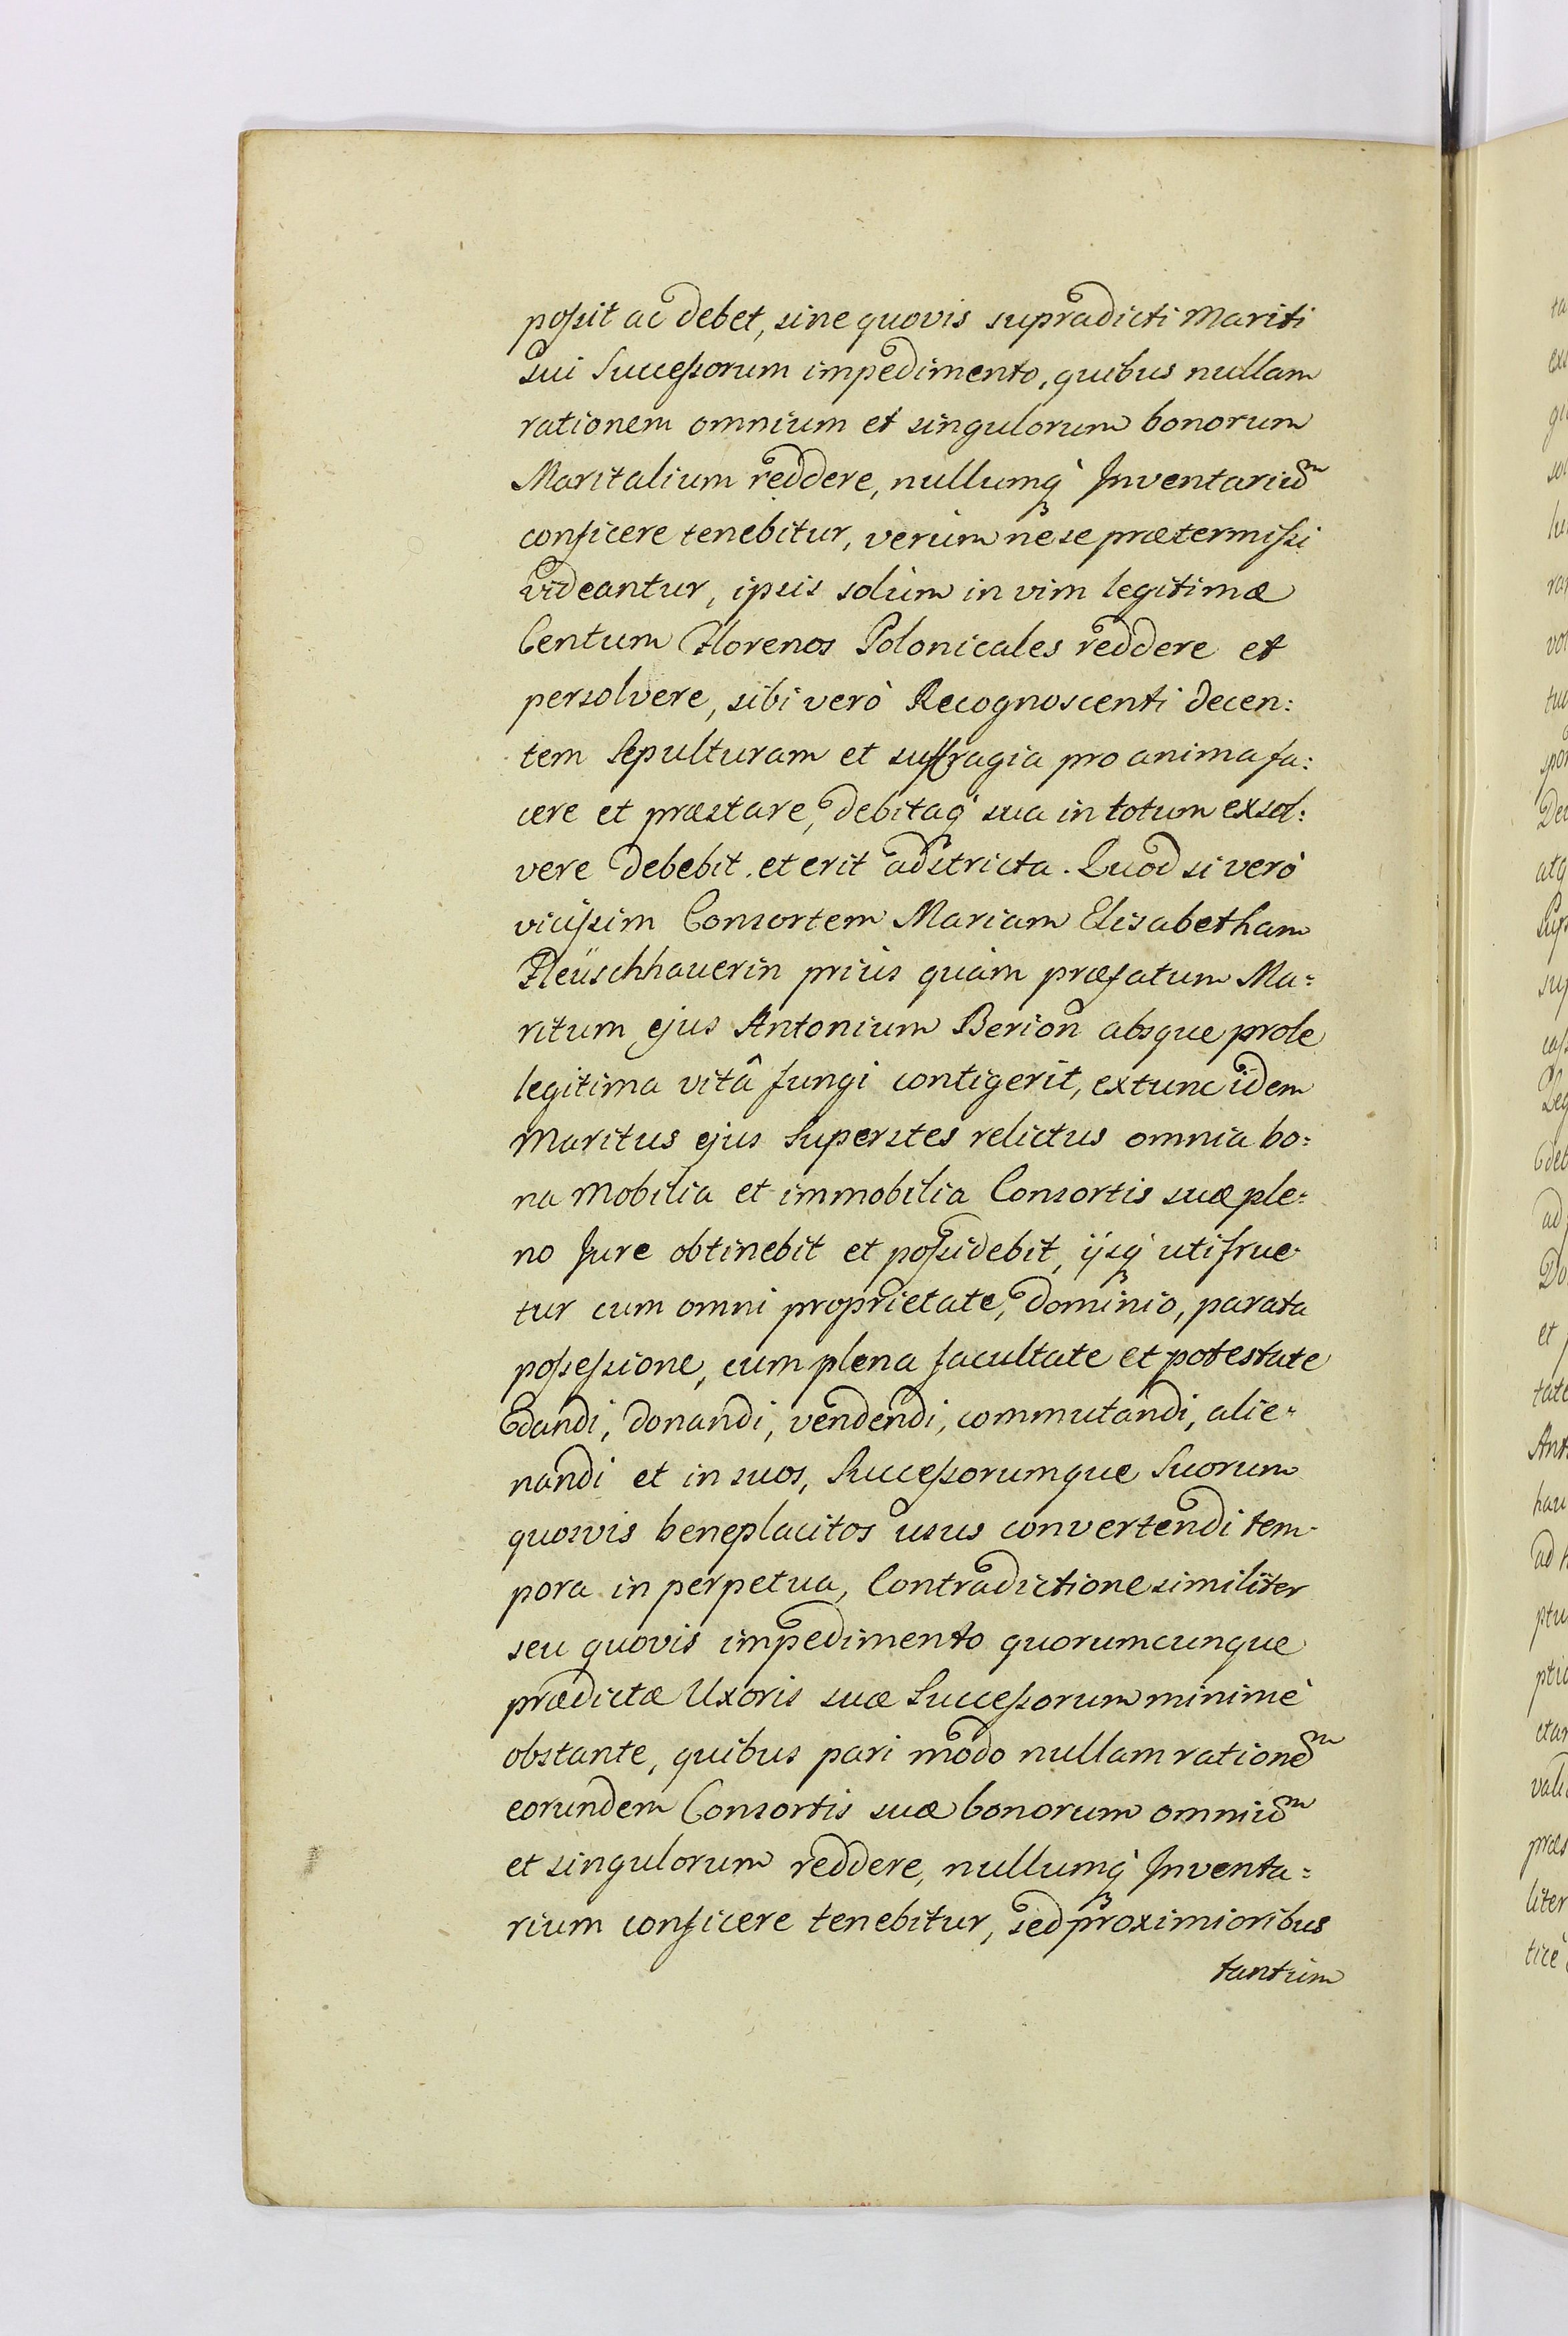 possit ac debet, sine quovis supradicti Mariti
sui Successorum impedimento, quibus nullam
rationem omnium et singulorum bonorum
Maritalium reddere, nullumq́ Inventariũ
conficere tenebitur, verùm nè se prætermissi
videantur, ipsis solùm in vim legitimæ
Centum Florenos Polonicales reddere et
persolvere, sibi verò Recognoscenti decen:
tem Sepulturam et suffragia pro anima fa:
cere et præstare, debitaq́ sua in totum exsol:
vere debebit et erit adstricta. Quod si verò
vicissim Consortem Mariam Elisabetham
Fleüschhauerin priùs quàm præfatum Ma:
ritum ejus Antonium Berion absque prole
legitima vitâ fungi contigerit, extunc idem
Maritus ejus Superstes relictus omnia bo:
na Mobilia et immobilia Consortis suæ ple:
no Jure obtinebit et possidebit, ijsq́ uti frue
tur cum omni proprietate, dominio, parata
possessione, cum plena facultate et potestate
dandi, donandi, vendendi, commutandi, alie:
nandi et in suos, Successorumque Suorum
quosvis beneplacitos usus convertendi tem
pora in perpetua, Contradictione similiter
seu quovis impedimento quorumcunque
prædictæ Uxoris suæ Successorum minimè
obstante, quibus pari modo nullam rationẽ
eorundem Consortis suæ bonorum omniũ
et singulorum reddere, nullumq́ Inventa:
rium conficere tenebitur, sed proximioribus
tantùm